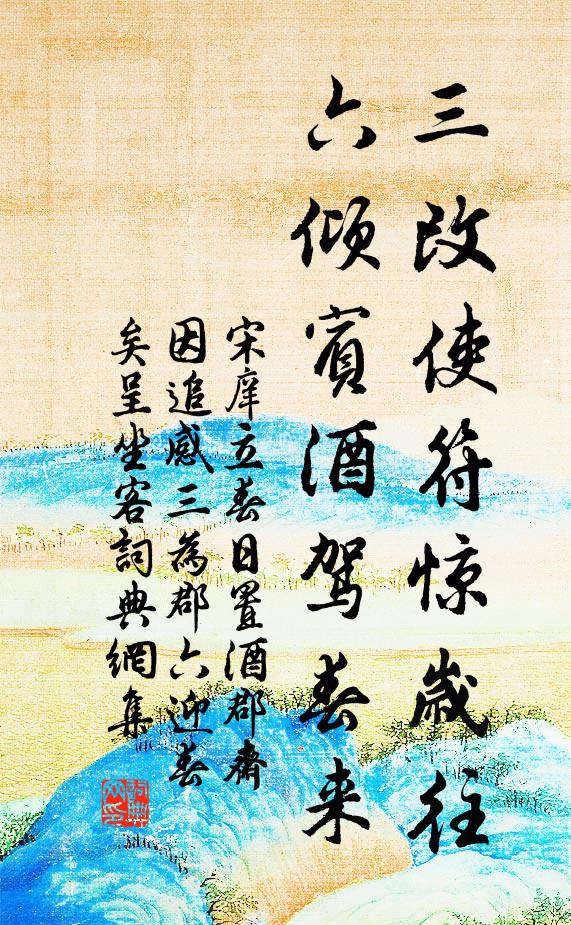 三改使符惊岁往
六倾賓酒驾春来
宋庠立春日置酒郡齋
因追感三為郡六迎春
矣呈坐客詞典網集